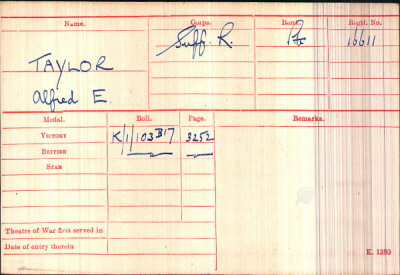 Name. Corps. Rank. Regtl. No.
TAYLOR Suff. R. Pte 16611
Alfred E.
Medal. Roll. Page. Remarks.
VICTORY K/1/103 B17 3252
BRITISH
STAR
Theatre of War first served in
Date of entry therein
K. 1380